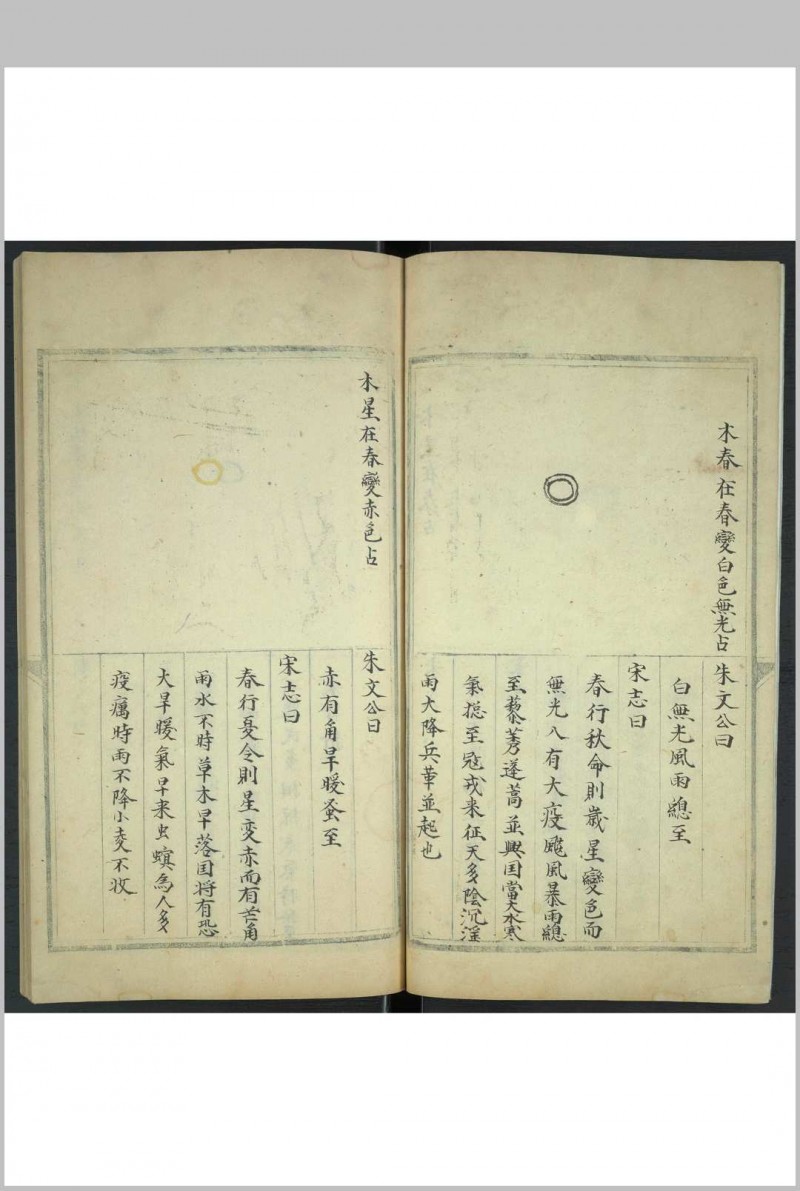 木春在春變白色無光占
朱文公曰
白無光風雨總至
宋志曰
春行秋命則歲星變色而
無光人有大疫飈風暴雨總
至藜莠蓬蒿並興国當大水寒
氣揔至寇戎来征天多陰沉淫
雨大降兵革並起也
木星在春變赤色占
朱文公曰
赤有角旱暖蚤至
宋志曰
春行夏令則星变赤而有芒角
雨水不時草木早落国将有恐
大旱暖氣早来虫螟為人多
疫癘時雨不降小麦不收